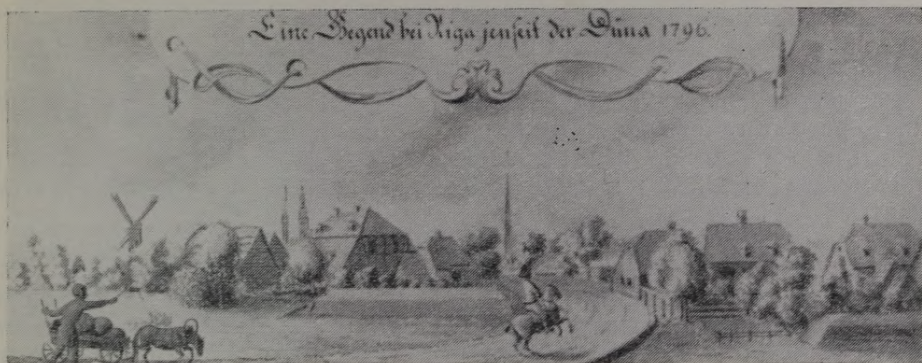 Eine Gegend bei Riga jenseit der Düna 1796.